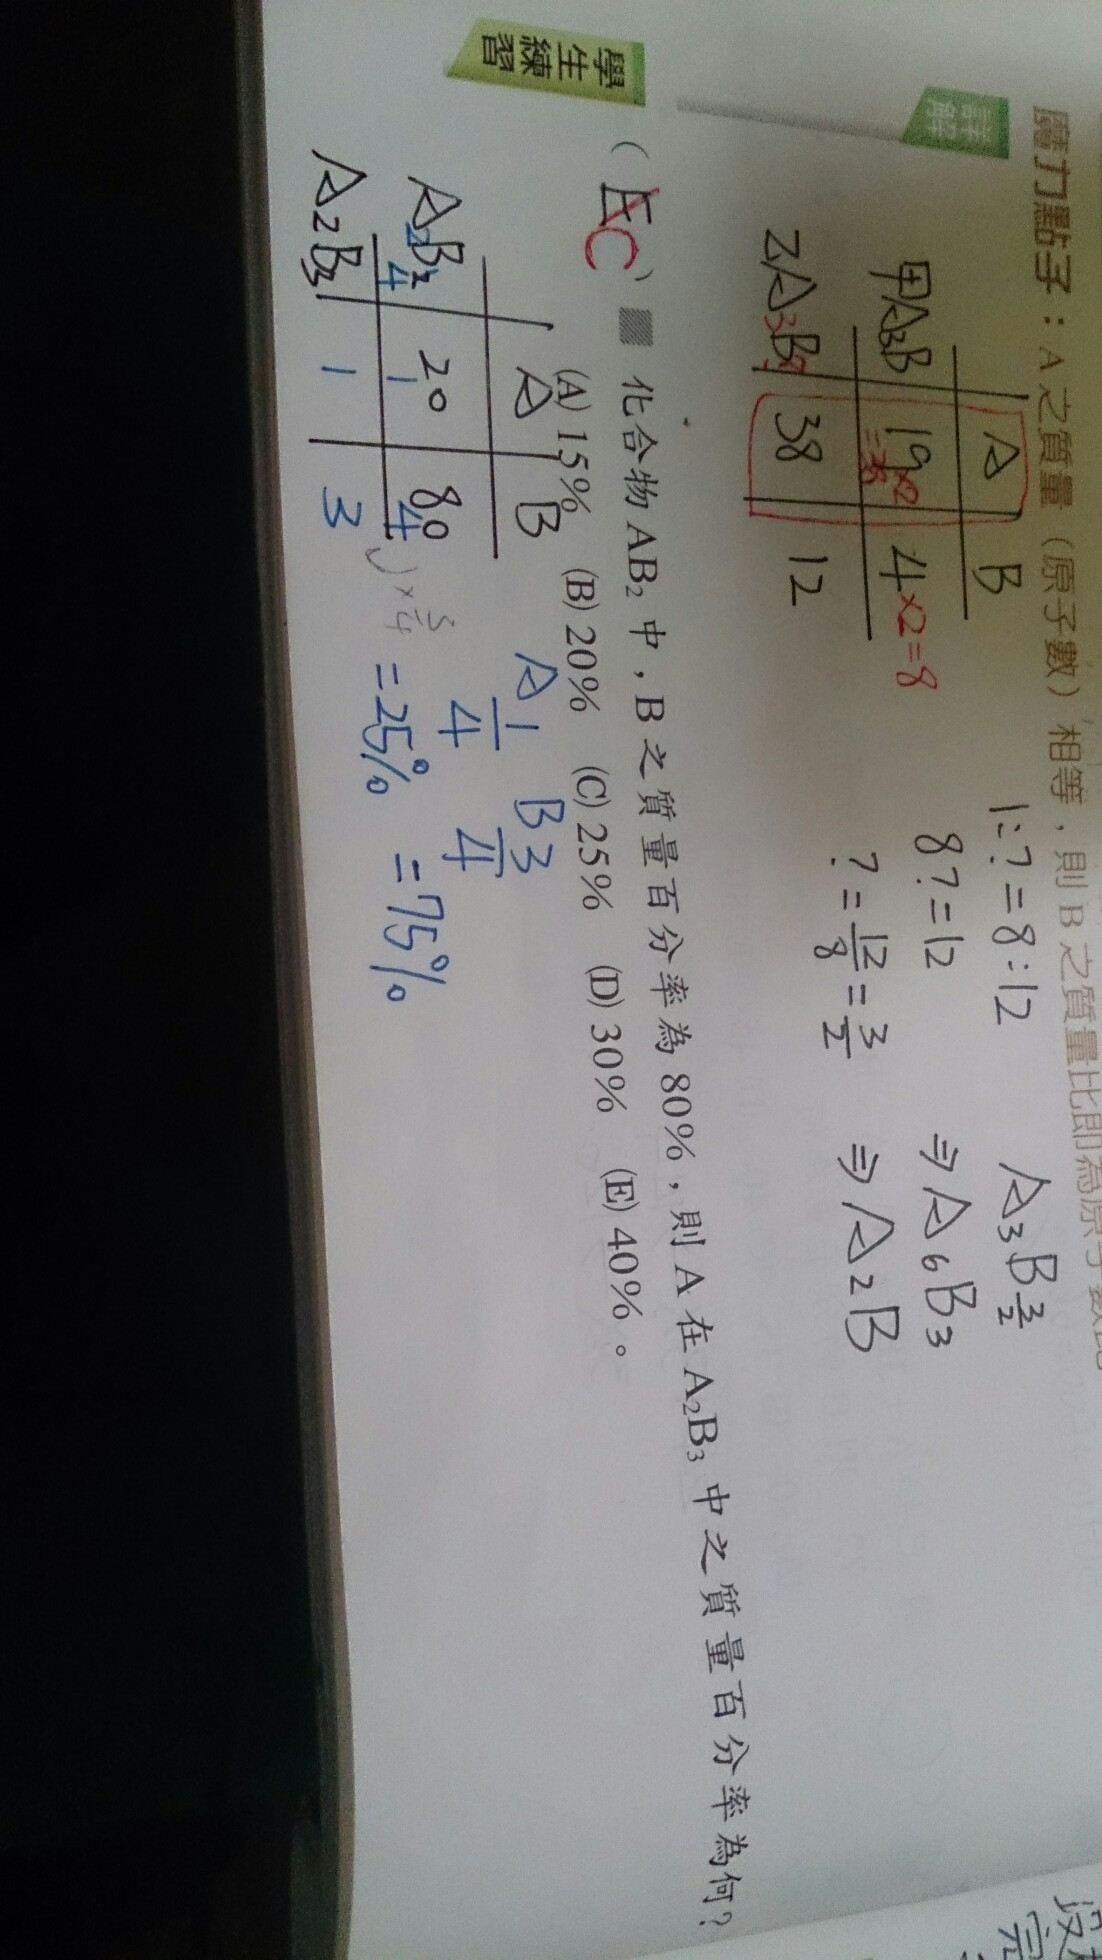 魔力點子：A 之質量（原子數）相等，則 B 之質量比即為原子數比
詳解
A B
甲A3B 19×2=38 4×2=8
乙A3B? 38 12
1:?=8:12
8?=12
?=12/8=3/2
A3B3/2
⇒A6B3
⇒A2B
學生練習
( E C ) 化合物 AB2 中，B 之質量百分率為 80%，則 A 在 A2B3 中之質量百分率為何？
(A) 15% (B) 20% (C) 25% (D) 30% (E) 40%。
A B
A2B4 20 80
1 4
A2B3 1 3
)×3/4
A 1/4 =25%
B 3/4 =75%